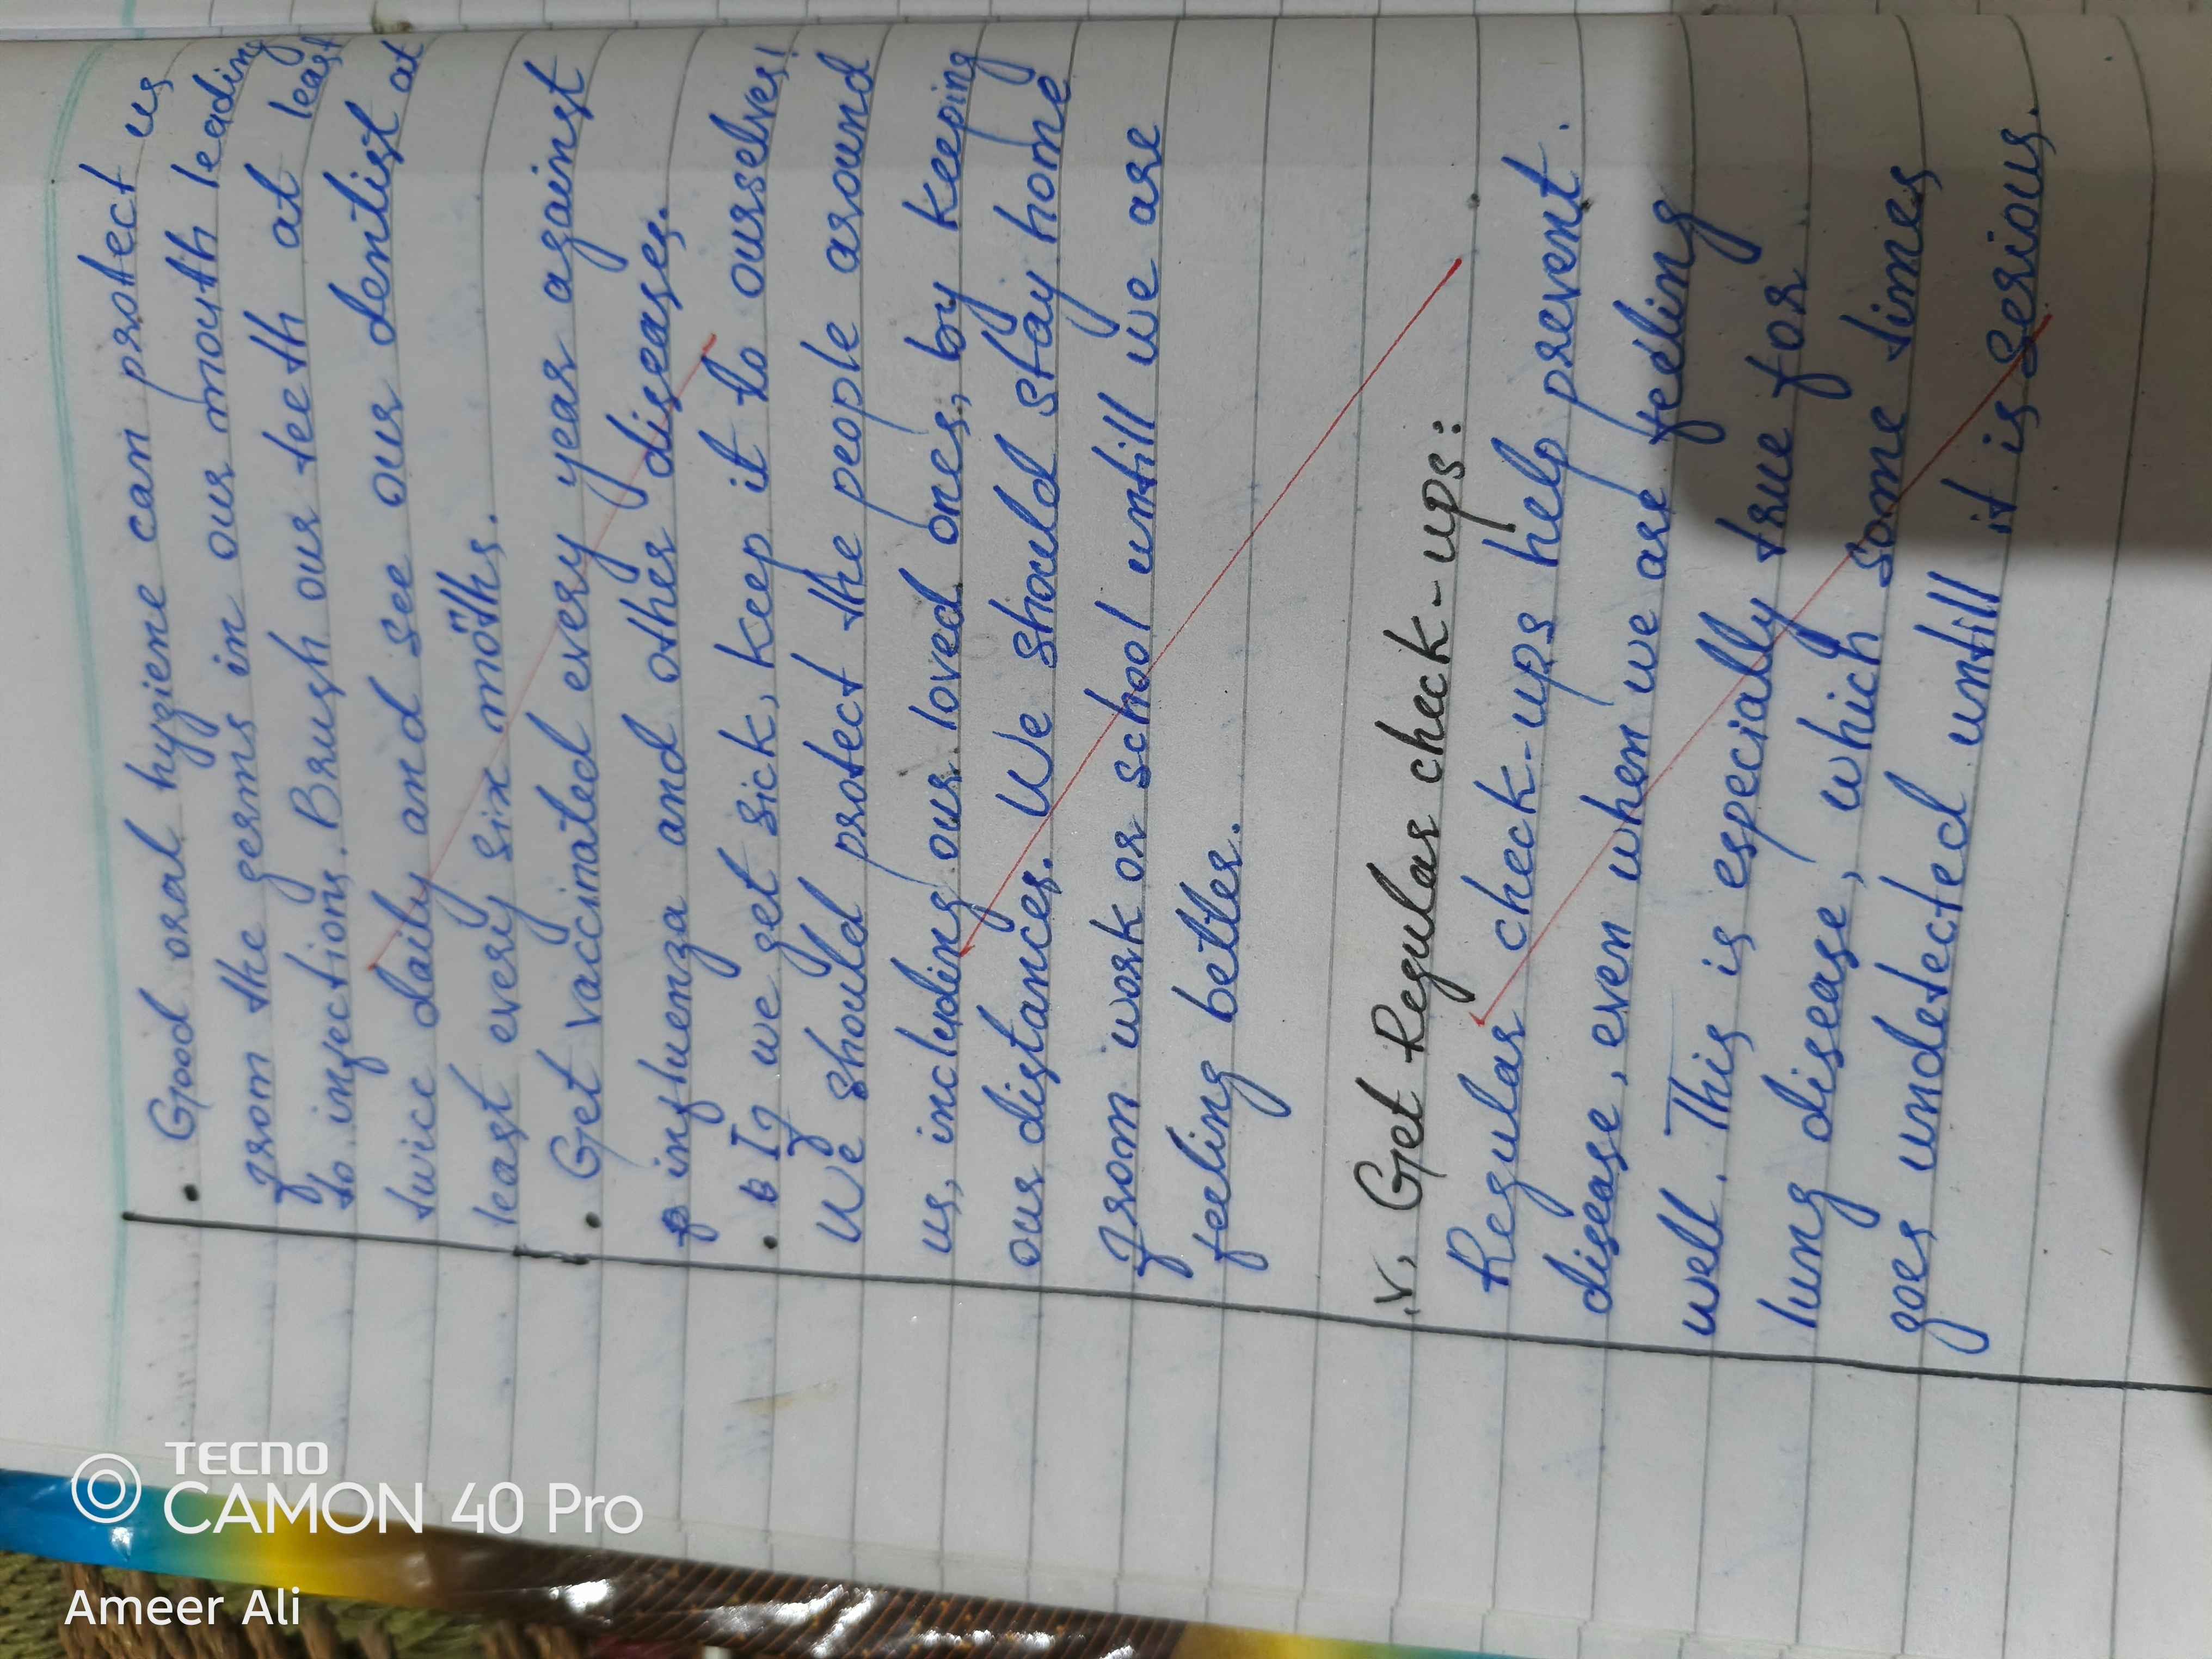 • Good oral hygiene can protect us
from the germs in our mouth leading
to infections. Brush our teeth at least
twice daily and see our dentist at
least every six months.
• Get vaccinated every year against
influenza and other diseases.
• If we get sick, keep it to ourselves!
We should protect the people around
us, including our loved ones, by keeping
our distances. We should stay home
from work or school untill we are
feeling better.
v, Get Regular check-ups:
Regular check-ups help prevent
disease, even when we are feeling
well. This is especially true for
lung disease, which some times
goes undetected untill it is serious.
TECNO
CAMON 40 Pro
Ameer Ali